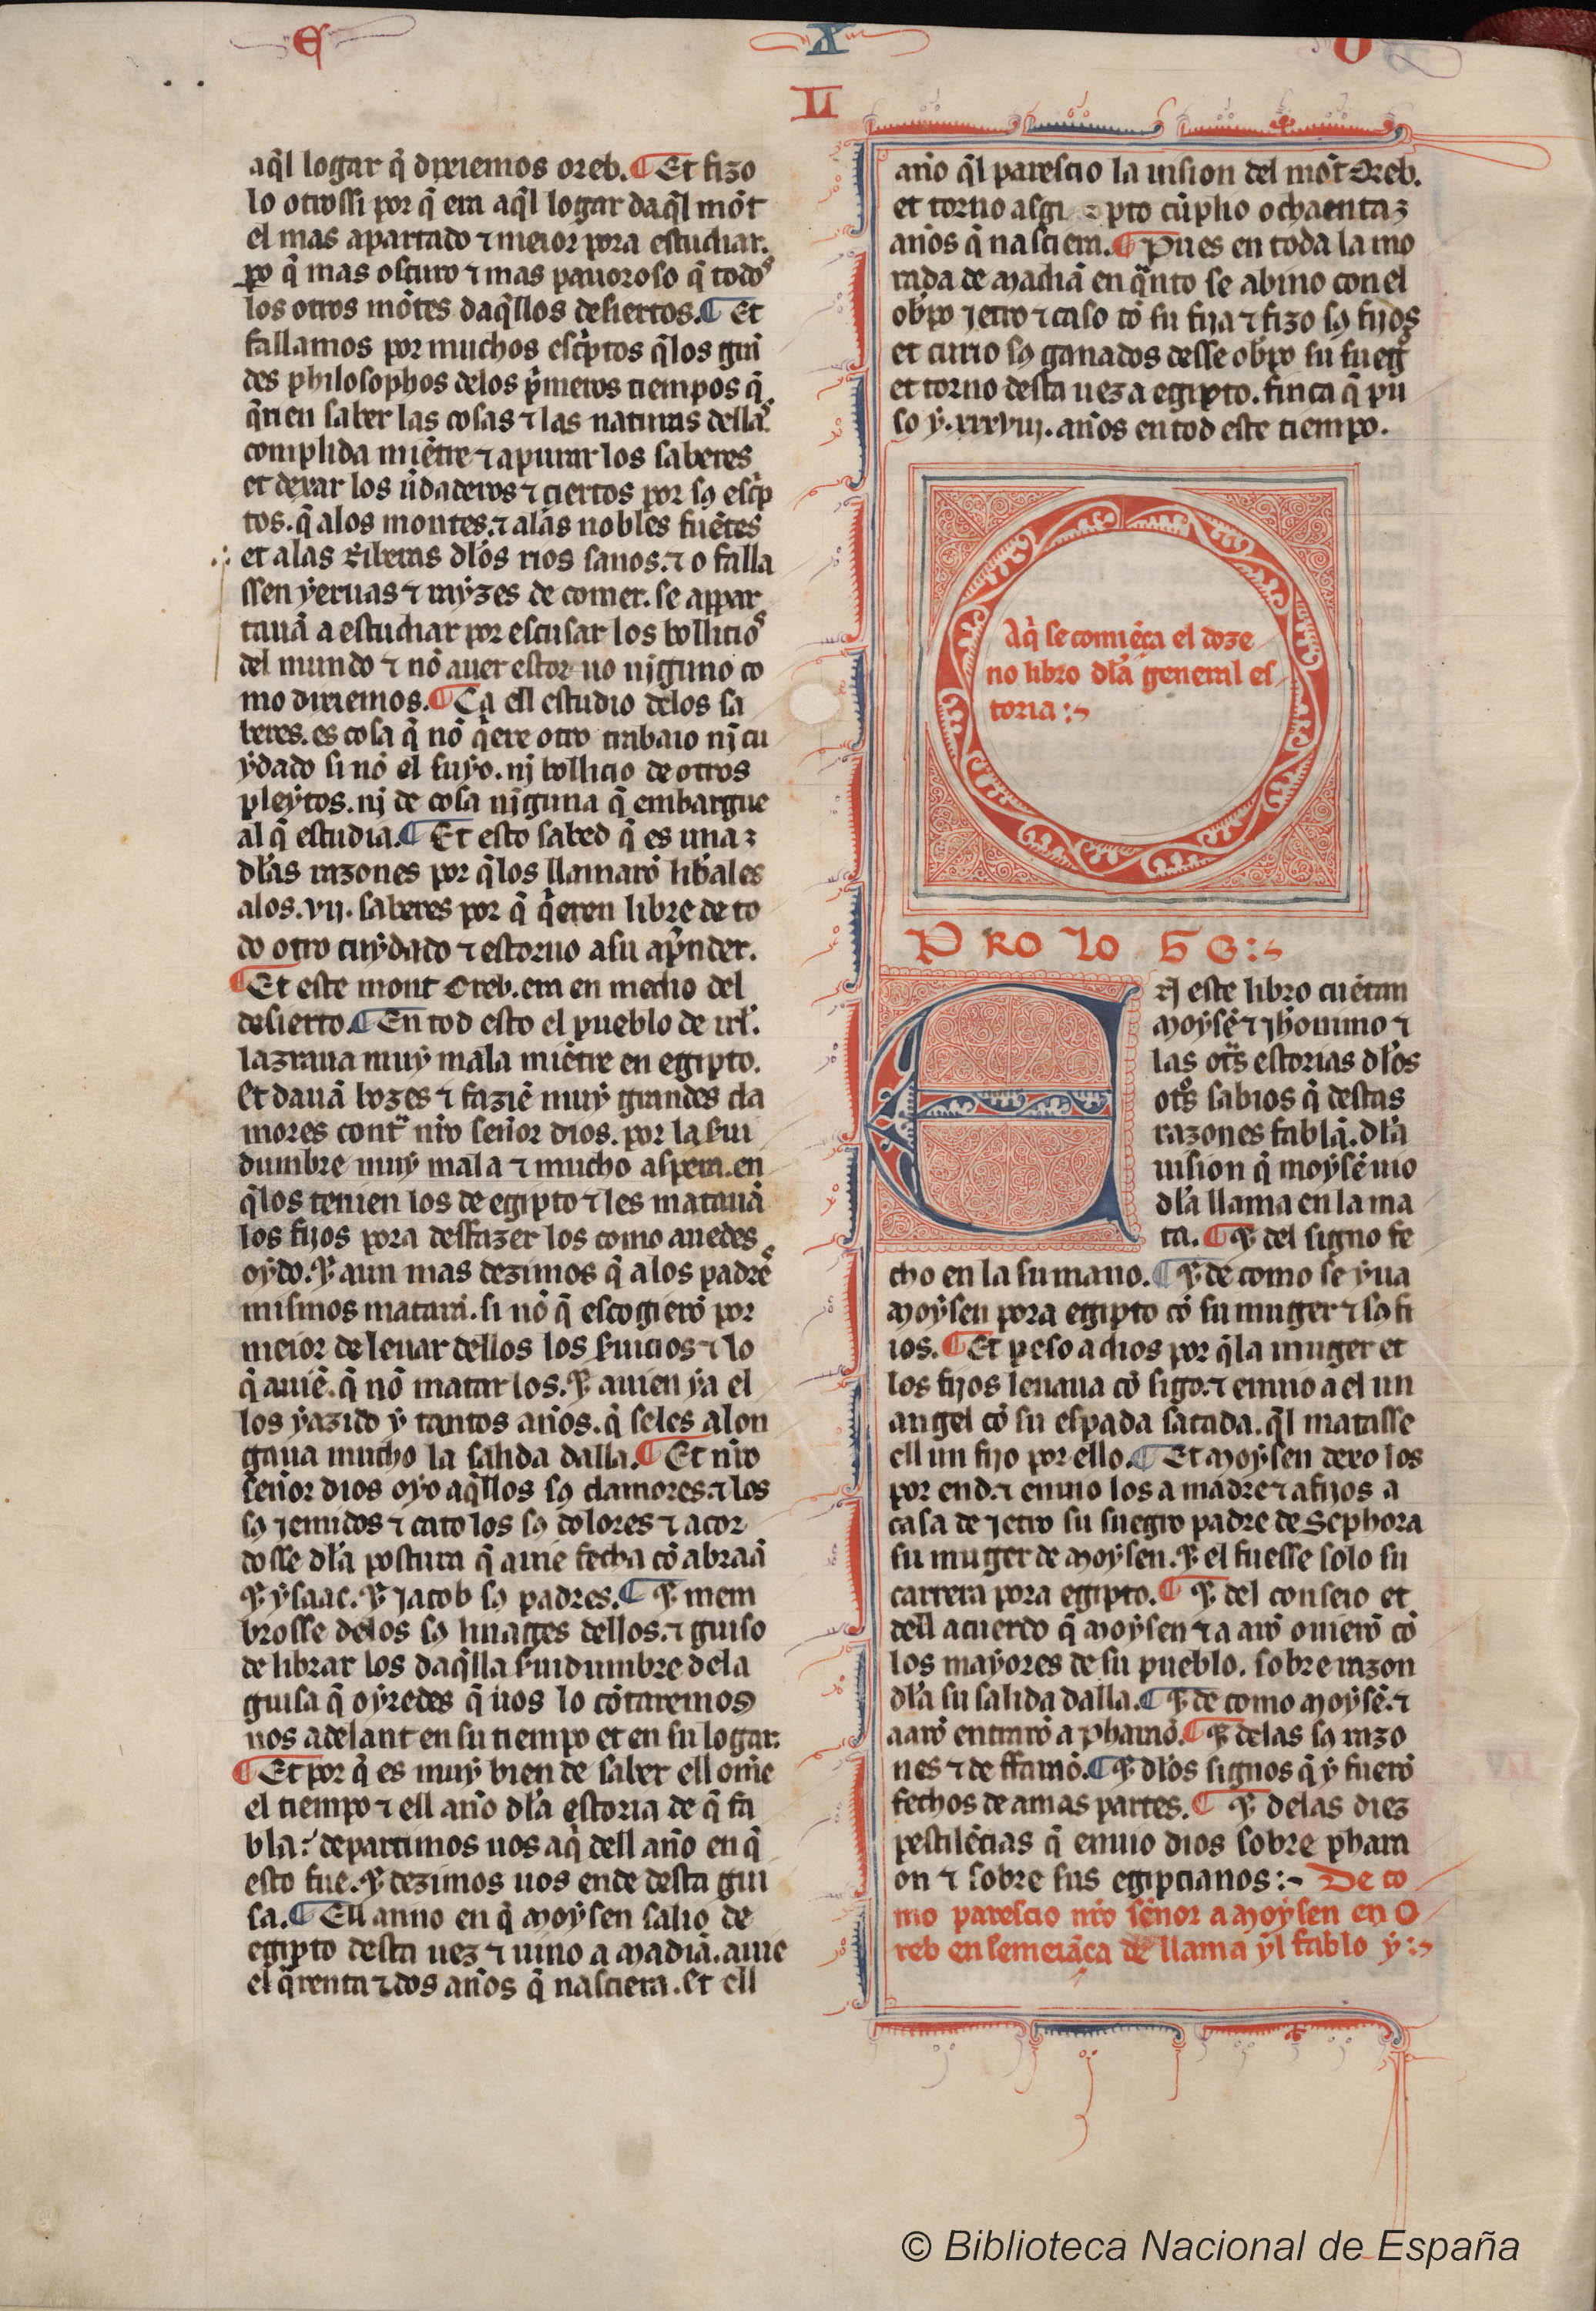 E X O
II
aq̃l logar q̃ dixiemos oreb. ¶ Et fizo
lo otrossi por q̃ era aq̃l logar daq̃l mõt
el mas apartado ⁊ meior pora estudiar.
ꝑo q̃ mas oscuro ⁊ mas pauoroso q̃ todos
los otros mõtes daq̃llos desiertos. ¶ Et
fallamos por muchos esc̃ptos q̃los gran
des philosophos delos p̃meros tiempos q̃
q̃rien saber las cosas ⁊ las naturas dellas
complida miẽtre ⁊ apurar los saberes
et dexar los ũdaderos ⁊ ciertos por sꝯ esc̃p
tos. q̃ alos montes. ⁊ alas nobles fuẽtes
et alas Riberas dl̃os rios sanos. ⁊ o falla
ssen yeruas ⁊ rayzes de comer. se appar
tauã a estudiar por escusar los bollicios
del mundo ⁊ nõ auer estoruo niguno co
mo dixiemos. ¶ Ca ell estudio delos sa
beres. es cosa q̃ nõ q̃ere otro trabaio nj cu
ydado si nõ el suyo. nj bollicio de otros
pleytos. nj de cosa njguna q̃ embargue
al q̃ estudia. ¶ Et esto sabed q̃ es una
dl̃as razones por q̃los llamarõ lib̃ales
alos .vij. saberes por q̃ q̃eren libre de to
do otro cuydado ⁊ estoruo a su ap̃nder.
¶ Et este mont Oreb. era en medio del
desierto. ¶ En tod esto el pueblo de irl̃.
lazraua muy mala miẽtre en egipto.
Et dauã bozes ⁊ faziẽ muy grandes cla
mores contra nr̃o señor dios. por la s̃ui
dumbre muy mala ⁊ mucho aspera. en
q̃los tenien los de egipto ⁊ les matauã
los fijos pora desfazer los como auedes
oydo. ⁊ aun mas dezimos q̃ alos padres
mismos mataran. si nõ q̃ escogierõ por
meior de leuar dellos los s̃uicios ⁊ lo
q̃ auiẽ. q̃ nõ matar los. ⁊ auien ya el
los yazido y tantos años. q̃ seles alon
gaua mucho la salida dalla. ¶ Et nr̃o
señor dios oyo aq̃llos sꝯ clamores. ⁊ los
sꝯ iemidos ⁊ cato los sꝯ dolores ⁊ acor
dosse dl̃a postura q̃ auie fecha cõ abraã
⁊ ysaac. ⁊ jacob sꝯ padres. ¶ ⁊ mem
brosse delos sꝯ linages dellos. ⁊ guiso
de librar los daq̃lla s̃uidumbre dela
guisa q̃ oyredes q̃ uos lo cõtaremos
nos adelant en su tiempo et en su logar.
¶ Et por q̃ es muy bien de saber ell om̃e
el tiempo ⁊ ell año dl̃a estoria de q̃ fa
bla: departimos uos aq̃ dell año en q̃
esto fue. ⁊ dezimos uos ende desta gui
sa. ¶ Ell anno en q̃ Moysen salio de
egipto desta uez ⁊ uino a Madiã. auie
el q̃renta ⁊ dos años q̃ nasciera. Et ell
año q̃l parescio la uision del mõt Oreb.
et torno a egipto cũplio ochaenta
años q̃ nasciera. ¶ Pues en toda la mo
rada de Madiã en q̃nto se abino con el
ob̃po jetro ⁊ caso cõ su fija ⁊ fizo sꝯ fijos
et curio sꝯ ganados desse ob̃po su suegro
et torno desta uez a egipto. finca q̃ pu
so y .xxxviij. años en tod este tiempo.
Aq̃ se comiẽça el doze
no libro dl̃a general es
toria :~
PROLOGO :~
En este libro cuẽtan
Moysẽ ⁊ jh̃onimo ⁊
las otras estorias dl̃os
otros sabios q̃ destas
razones fablã. dl̃a
uision q̃ moysẽ uio
dl̃a llama en la ma
ta. ¶ ⁊ del signo fe
cho en la su mano. ¶ ⁊ de como se yua
Moysen pora egipto cõ su muger ⁊ sꝯ fi
ios. ¶ Et peso a dios por q̃la muger et
los fijos leuaua cõ sigo. ⁊ enuio a el un
angel cõ su espada sacada. q̃l matasse
ell un fijo por ello. ¶ Et Moysen dexo los
por end. ⁊ enuio los a madre ⁊ a fijos a
casa de jetro su suegro padre de Sephora
su muger de Moysen. ⁊ el fuesse solo su
carrera pora egipto. ¶ ⁊ del conseio et
dell acuerdo q̃ Moysen ⁊ a arõ ouierõ cõ
los mayores de su pueblo. sobre razon
dl̃a su salida dalla. ¶ ⁊ de como Moysẽ. ⁊
aarõ entrarõ a pharaõ. ¶ ⁊ delas sꝯ razo
nes ⁊ de ffaraõ. ¶ ⁊ dl̃os signos q̃ y fuerõ
fechos de amas partes. ¶ ⁊ delas diez
pestilẽcias q̃ enuio dios sobre phara
on ⁊ sobre sus egipcianos :~ De co
mo parescio nr̃o señor a Moysen en O
reb en semeiãça de llama yl fablo y :~
© Biblioteca Nacional de España